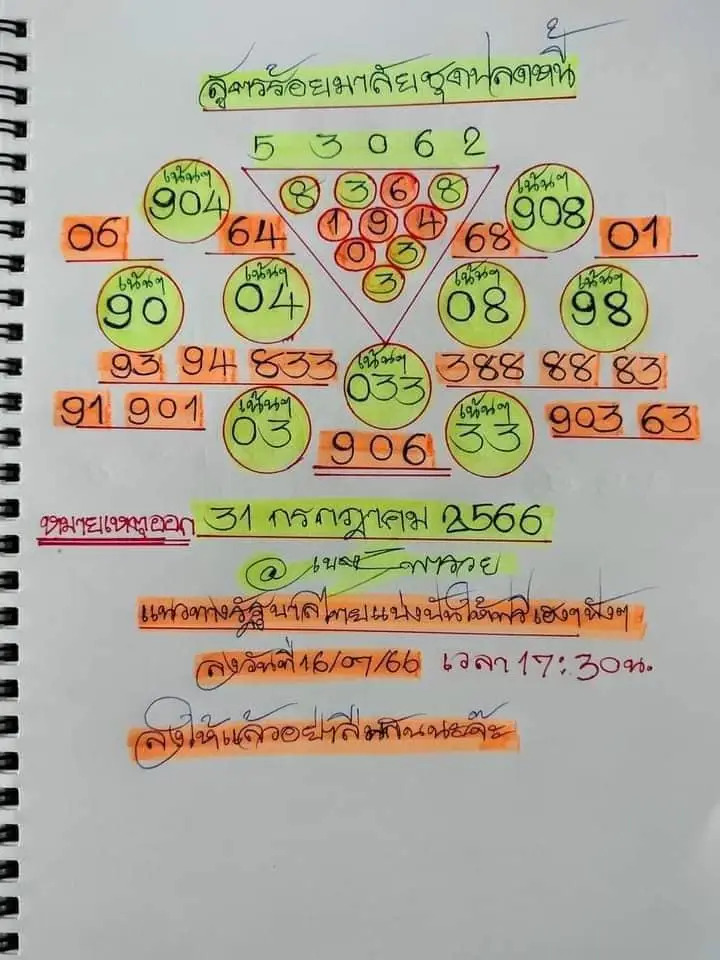 สูตรร้อยมาลัยชุดปลดหนี้
5 3 0 6 2
8 3 6 8
เน้นๆ 904 เน้นๆ 908
1 9 4
06 64 68 01
0 3
3
เน้นๆ 90 เน้นๆ 04 เน้นๆ 08 เน้นๆ 98
93 94 833 เน้นๆ 033 388 88 83
91 901 เน้นๆ 03 เน้นๆ 33 903 63
906
หมายเหตุออก 31 กรกฎาคม 2566
@
แนวทางรัฐบาลไทยแบ่งปันให้ฟรีเฮงๆปังๆ
ลงวันที่ 16/07/66 เวลา 17:30น.
ส่งให้แล้วอย่าลืมกันนะค๊ะ